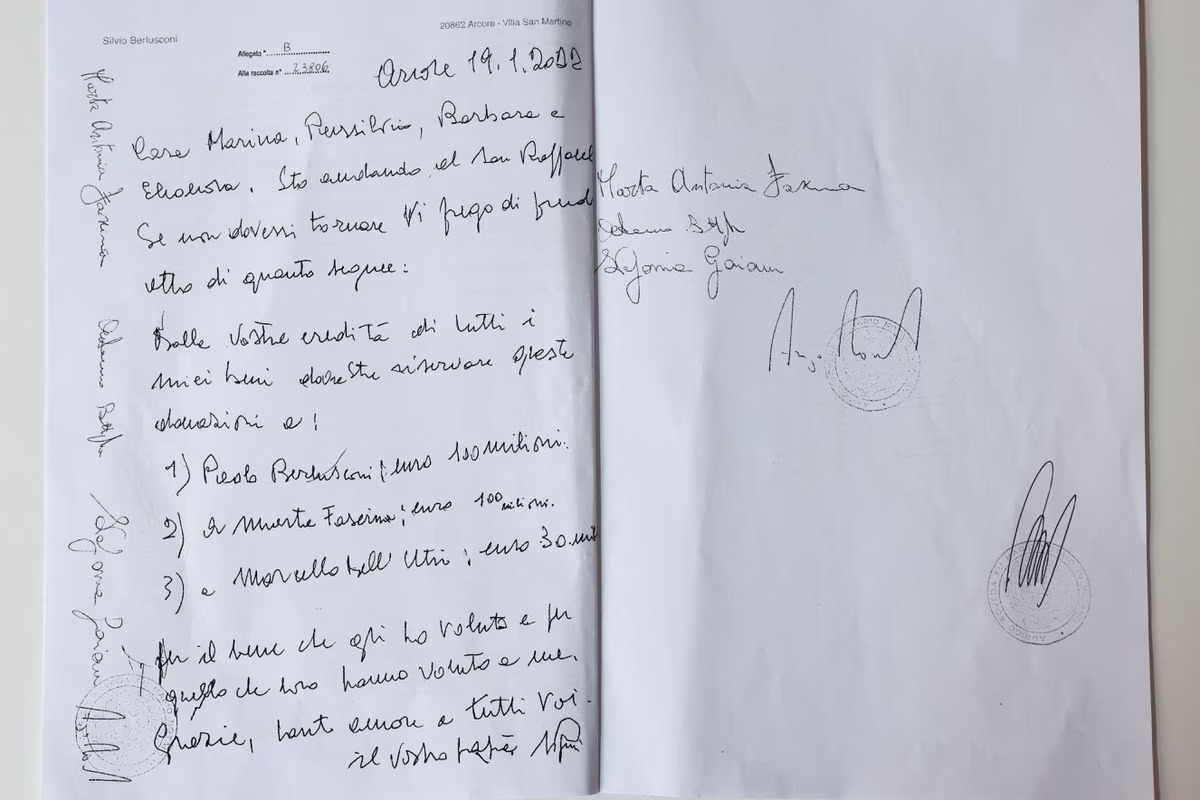 Silvio Berlusconi
20862 Arcore - Villa San Martino
Allegato " B
Alla raccolta n° 23806
Arcore 19.1.2022
Cara Marina, Piersilvio, Barbara e
Eleonora, Sto andando al San Raffael
Se non dovessi tornare Vi prego di prend
atto di quanto segue:
Dalla vostra eredità di tutti i
miei beni dovreste riservare queste
donazioni a:
1) Paolo Berlusconi; euro 100 milioni.
2) a Marta Fascina; euro 100 milioni.
3) a Marcello Dell'Utri; euro 30 mil
per il bene che gli ho voluto e per
quello che loro hanno voluto a me.
Grazie, tanto amore a tutti voi.
il vostro papà
Marta Antonia Fascina
Stefania Gaiani
Marta Antonia Fascina
Stefania Gaiani